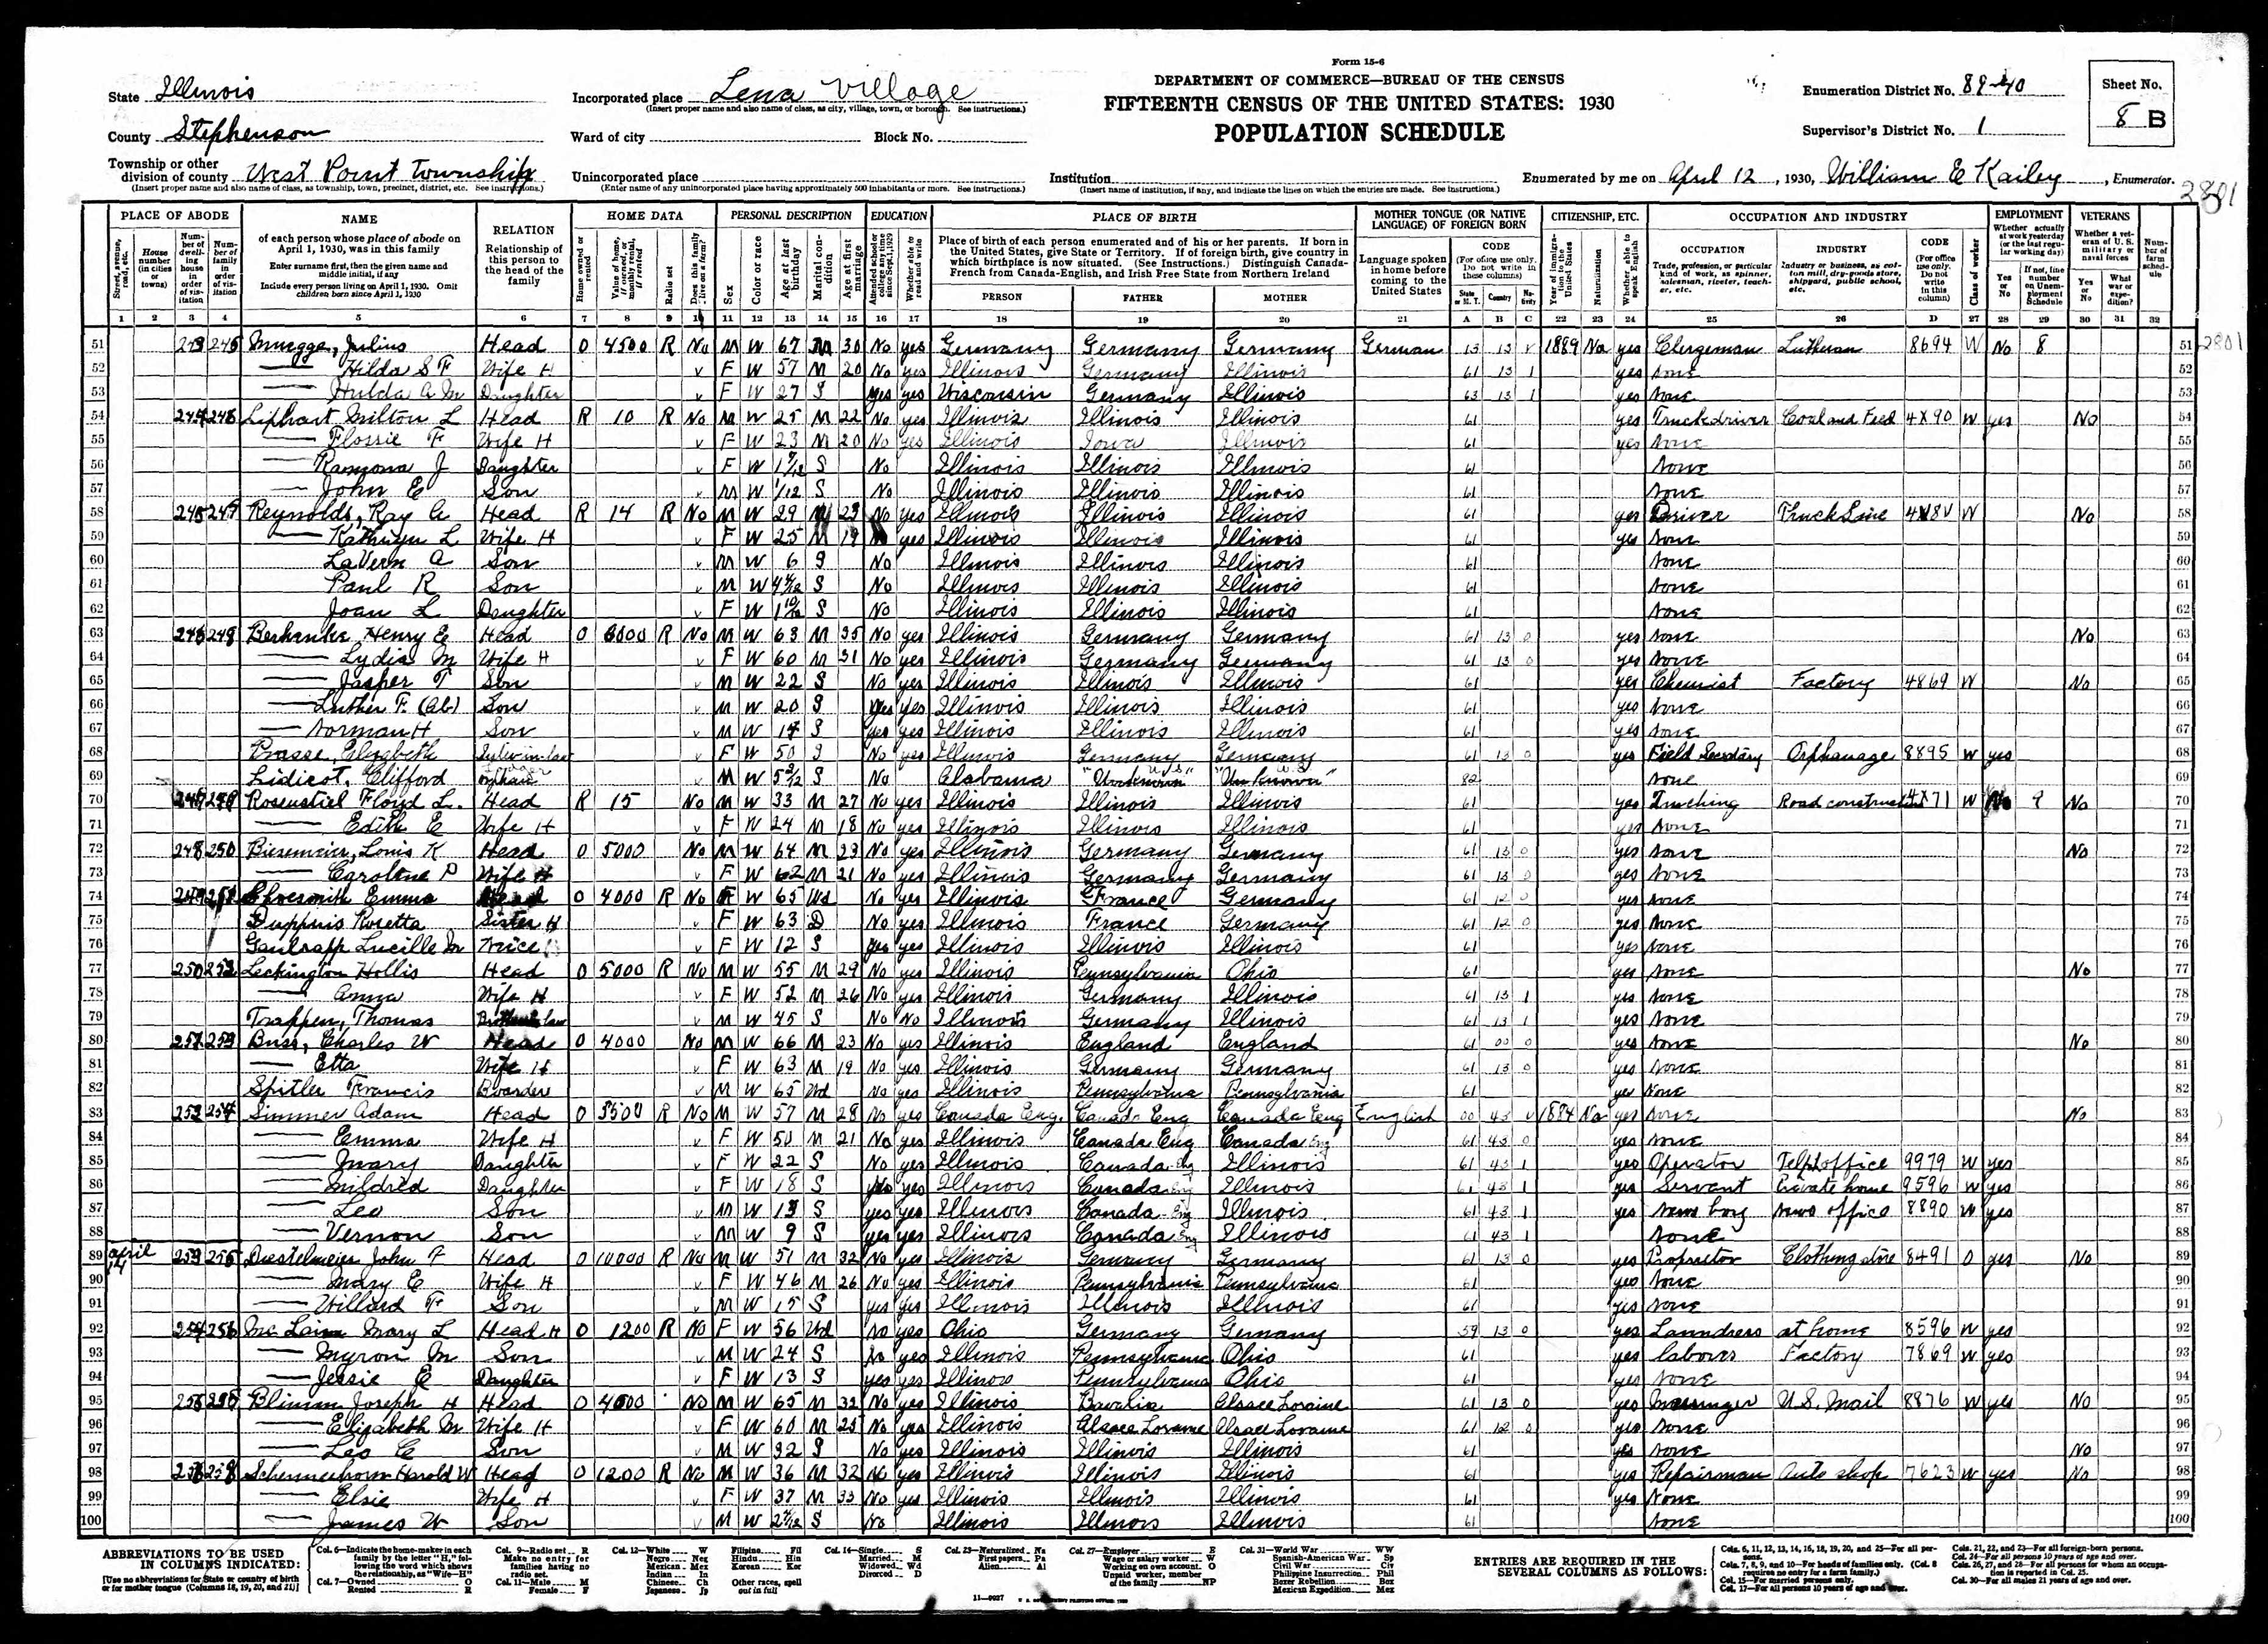 Form 15-6
DEPARTMENT OF COMMERCE—BUREAU OF THE CENSUS
FIFTEENTH CENSUS OF THE UNITED STATES: 1930
POPULATION SCHEDULE
State Illinois
County Stephenson
Township or other division of county West Point Township
(Insert proper name and also name of class, as township, town, precinct, district, etc. See instructions.)
Incorporated place Lena Village
(Insert proper name and also name of class, as city, village, town, or borough. See instructions.)
Ward of city Block No.
Unincorporated place
(Enter name of any unincorporated place having approximately 500 inhabitants or more. See instructions.)
Institution
(Insert name of institution, if any, and indicate the lines on which the entries are made. See instructions.)
Enumeration District No. 89-40
Supervisor's District No. 1
Sheet No. 8 B
Enumerated by me on April 12, 1930, William E Kailey, Enumerator.
2801
PLACE OF ABODE NAME RELATION HOME DATA PERSONAL DESCRIPTION EDUCATION PLACE OF BIRTH MOTHER TONGUE (OR NATIVE LANGUAGE) OF FOREIGN BORN CITIZENSHIP, ETC. OCCUPATION AND INDUSTRY EMPLOYMENT VETERANS
PERSON FATHER MOTHER
1 2 3 4 5 6 7 8 9 10 11 12 13 14 15 16 17 18 19 20 21 A B C 22 23 24 25 26 D 27 28 29 30 31 32
51 243 245 Julius Head O 4500 R No M W 67 M 30 No yes Germany Germany Germany German 13 13 V 1889 Na yes Clergeman Lutheran 8694 W No 8 51 2801
52 Hilda S F Wife H v F W 57 M 20 No yes Illinois Germany Illinois 61 13 1 yes None 52
53 Hulda A M Daughter v F W 27 S yes yes Wisconsin Germany Illinois 63 13 1 yes None 53
54 244 246 Liphart Milton L Head R 10 R No M W 25 M 22 No yes Illinois Illinois Illinois 61 yes Truck driver Coal and Feed 4X90 W yes No 54
55 Flossie F Wife H v F W 23 M 20 No yes Illinois Iowa Illinois 61 yes None 55
56 Ramona J Daughter v F W S No Illinois Illinois Illinois 61 None 56
57 John E Son v M W 1/12 S No Illinois Illinois Illinois 61 None 57
58 245 247 Reynolds, Ray A Head R 14 R No M W 29 M 23 No yes Illinois Illinois Illinois 61 yes Driver Truck Line W No 58
59 Kathryn L Wife H v F W 25 M 19 yes Illinois Illinois Illinois 61 yes None 59
60 LaVern A Son v M W 6 S No Illinois Illinois Illinois 61 None 60
61 Paul R Son v M W S No Illinois Illinois Illinois 61 None 61
62 Joan L Daughter v F W 1 10/12 S No Illinois Illinois Illinois 61 None 62
63 246 248 Henry E Head O 6000 R No M W 63 M 35 No yes Illinois Germany Germany 61 13 0 yes None No 63
64 Lydia M Wife H v F W 60 M 31 No yes Illinois Germany Germany 61 13 0 yes None 64
65 Jasper T Son v M W 22 S No yes Illinois Illinois Illinois 61 yes Chemist Factory 4869 W No 65
66 Luther F. (Ab) Son v M W 20 S yes yes Illinois Illinois Illinois 61 yes None 66
67 Norman H Son v M W 17 S yes yes Illinois Illinois Illinois 61 yes None 67
68 Brasse, Elizabeth Sister in law v F W 50 S No yes Illinois Germany Germany 61 13 0 yes Field Secretary Orphanage 8895 W yes 68
69 Lidicot, Clifford orphan v M W S No Alabama "Unknown" "Unknown" 82 None 69
70 247 249 Rosenstiel Floyd L. Head R 15 No M W 33 M 27 No yes Illinois Illinois Illinois 61 yes Trucking Road construction 4X71 W No 9 No 70
71 Edith E Wife H v F W 24 M 18 No yes Illinois Illinois Illinois 61 yes None 71
72 248 250 Biesemeier, Louis K Head O 5000 No M W 64 M 23 No yes Illinois Germany Germany 61 13 0 yes None No 72
73 Caroline P Wife H v F W 62 M 21 No yes Illinois Germany Germany 61 13 0 yes None 73
74 249 251 Shoesmith Emma Head O 4000 R No F W 65 Wd No yes Illinois France Germany 61 12 0 yes None 74
75 Duppuis Rosetta Sister H v F W 63 D No yes Illinois France Germany 61 12 0 yes None 75
76 Lucille M Niece v F W 12 S yes yes Illinois Illinois Illinois 61 yes None 76
77 250 252 Leckington Hollis Head O 5000 R No M W 55 M 29 No yes Illinois Pennsylvania Ohio 61 yes None No 77
78 Anna Wife H v F W 52 M 26 No yes Illinois Germany Illinois 61 13 1 yes None 78
79 Trappen, Thomas Brother in law v M W 45 S No No Illinois Germany Illinois 61 13 1 yes None 79
80 251 253 Buss, Charles W Head O 4000 No M W 66 M 23 No yes Illinois England England 61 00 0 yes None No 80
81 Etta Wife H v F W 63 M 19 No yes Illinois Germany Germany 61 13 0 yes None 81
82 Spitler Francis Boarder v M W 65 Wd No yes Illinois Pennsylvania Pennsylvania 61 yes None 82
83 252 254 Simmer Adam Head O 3500 R No M W 57 M 28 No yes Canada Eng. Canada Eng Canada Eng English 00 43 V 1884 Na yes None No 83
84 Emma Wife H v F W 50 M 21 No yes Illinois Canada Eng Canada Eng 61 43 0 yes None 84
85 Mary Daughter v F W 22 S No yes Illinois Canada Eng Illinois 61 43 1 yes Operator Telph office 9979 W yes 85
86 Mildred Daughter v F W 18 S yes yes Illinois Canada Eng Illinois 61 43 1 yes Servant Private home 9596 W yes 86
87 Leo Son v M W 13 S yes yes Illinois Canada Eng Illinois 61 43 1 yes News boy News office 8890 W yes 87
88 Vernon Son v M W 9 S yes yes Illinois Canada Eng Illinois 61 43 1 None 88
89 April 14 253 255 Diestelmeier John F Head O 10000 R No M W 51 M 32 No yes Illinois Germany Germany 61 13 0 yes Proprietor Clothing store 8491 O yes No 89
90 Mary E Wife H v F W 46 M 26 No yes Illinois Pennsylvania Pennsylvania 61 yes None 90
91 Willard F Son v M W 15 S yes yes Illinois Illinois Illinois 61 yes None 91
92 254 256 Mary L Head H O 1200 R No F W 56 Wd No yes Ohio Germany Germany 59 13 0 yes Laundress at home 8596 W yes 92
93 Myron M Son v M W 24 S No yes Illinois Pennsylvania Ohio 61 yes labores Factory 7869 W yes 93
94 Jessie E Daughter v F W 13 S yes yes Illinois Pennsylvania Ohio 61 yes None 94
95 255 Bliman Joseph H Head O 4000 No M W 65 M 32 No yes Illinois Bavaria Alsace Loraine 61 13 0 yes Messinger U.S. Mail 8876 W yes No 95
96 Elizabeth M Wife H v F W 60 M 25 No yes Illinois Alsace Loraine Alsace Loraine 61 12 0 yes None 96
97 Leo C Son v M W 32 S No yes Illinois Illinois Illinois 61 yes None No 97
98 256 258 Schermerhorn Harold W Head O 1200 R No M W 36 M 32 No yes Illinois Illinois Illinois 61 yes Repairman Auto shop 7623 W yes No 98
99 Elsie Wife H v F W 37 M 33 No yes Illinois Illinois Illinois 61 yes None 99
100 James W Son v M W S No Illinois Illinois Illinois 61 None 100
ABBREVIATIONS TO BE USED IN COLUMNS INDICATED:
[Use no abbreviations for State or country of birth or for mother tongue (Columns 18, 19, 20, and 21)]
Col. 6—Indicate the home-maker in each family by the letter "H," following the word which shows the relationship, as "Wife—H"
Col. 7—Owned O Rented R
Col. 9—Radio set R Make no entry for families having no radio set.
Col. 11—Male M Female F
Col. 12—White W Negro Neg Mexican Mex Indian In Chinese Ch Japanese Jp Filipino Fil Hindu Hin Korean Kor Other races, spell out in full
Col. 14—Single S Married M Widowed Wd Divorced D
Col. 23—Naturalized Na First papers Pa Alien Al
Col. 27—Employer E Wage or salary worker W Working on own account O Unpaid worker, member of the family NP
Col. 31—World War WW Spanish-American War Sp Civil War Civ Philippine Insurrection Phil Boxer Rebellion Box Mexican Expedition Mex
ENTRIES ARE REQUIRED IN THE SEVERAL COLUMNS AS FOLLOWS:
Cols. 6, 11, 12, 13, 14, 16, 18, 19, 20, and 25—For all persons.
Cols. 7, 8, 9, and 10—For heads of families only. (Col. 8 requires no entry for a farm family.)
Col. 15—For married persons only.
Col. 17—For all persons 10 years of age and over.
Cols. 21, 22, and 23—For all foreign-born persons.
Col. 24—For all persons 10 years of age and over.
Cols. 26, 27, and 28—For all persons for whom an occupation is reported in Col. 25.
Col. 30—For all males 21 years of age and over.
11—9027